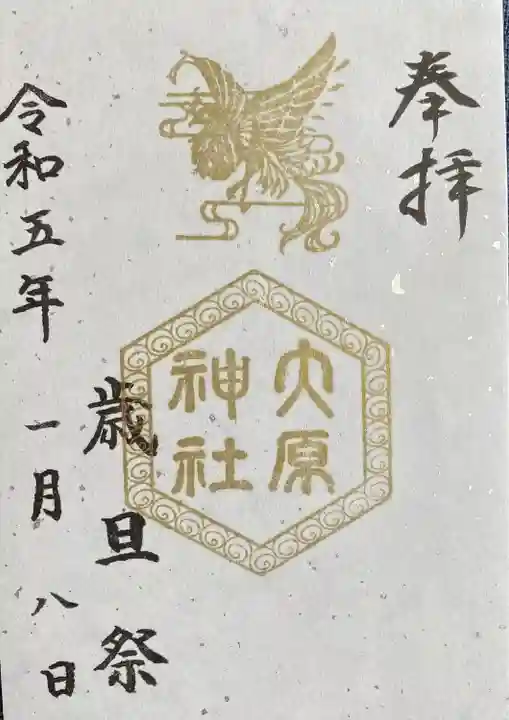 奉拝
大原
神社
歳旦祭
令和五年 一月八日